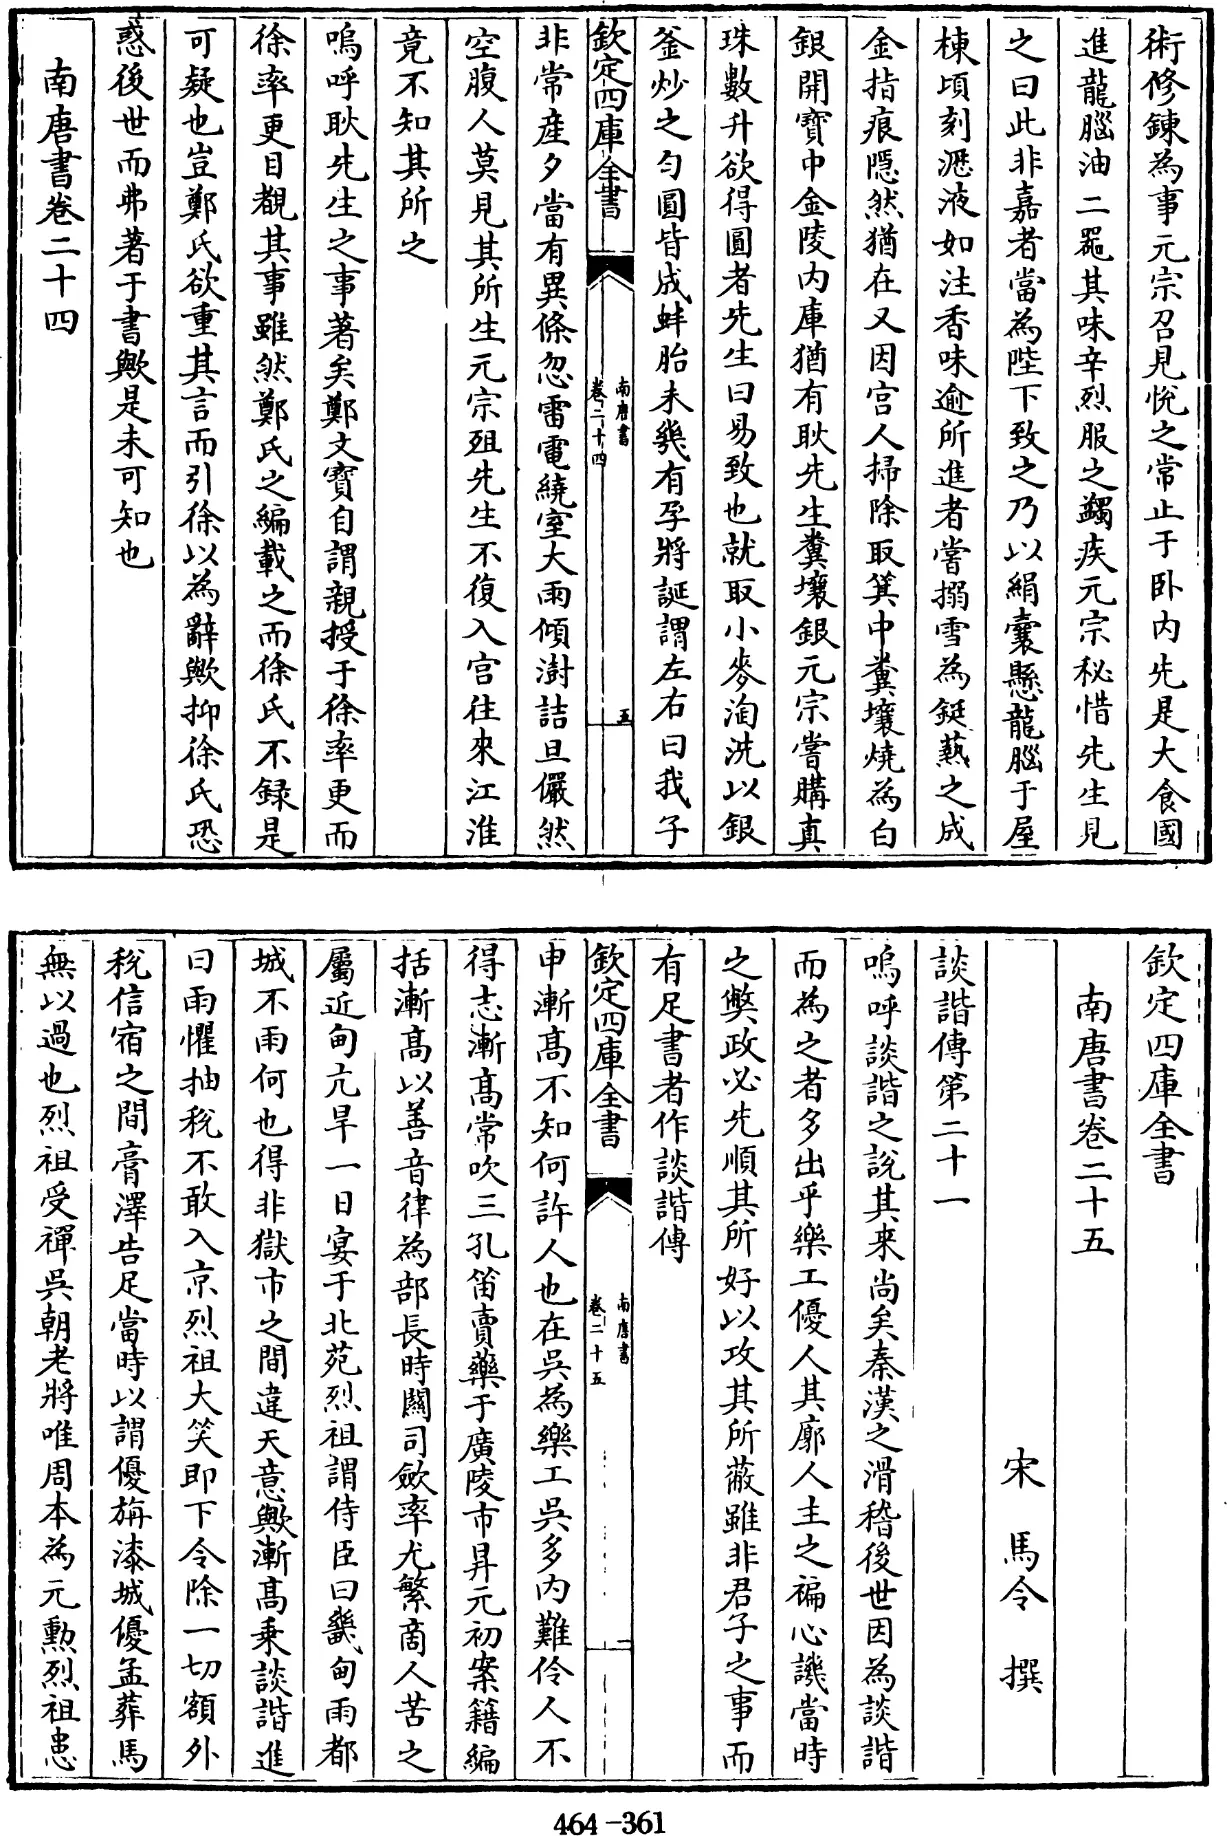 術修鍊為事元宗召見悅之常止于卧内先是大食國
進龍腦油二器其味辛烈服之蠲疾元宗秘惜先生見
之曰此非嘉者當為陛下致之乃以絹囊懸龍腦于屋
棟頃刻瀝液如注香味逾所進者嘗搦雪為鋌爇之成
金指痕隱然猶在又因宫人掃除取箕中糞壤燒為白
銀開寳中金陵内庫猶有耿先生糞壤銀元宗嘗購真
珠數升欲得圓者先生曰易致也就取小麥淘洗以銀
釜炒之匀圓皆成蚌胎未㡬有孕將誕謂左右曰我子
欽定四庫全書
南唐書
卷二十四
五
非常産夕當有異倐忽雷電繞室大雨傾澍詰旦儼然
空腹人莫見其所生元宗殂先生不復入宫往來江淮
竟不知其所之
嗚呼耿先生之事著矣鄭文寳自謂親授于徐率更而
徐率更目覩其事雖然鄭氏之編載之而徐氏不録是
可疑也豈鄭氏欲重其言而引徐以為辭歟抑徐氏恐
惑後世而弗著于書歟是未可知也
南唐書卷二十四
欽定四庫全書
南唐書卷二十五
宋 馬令 撰
談諧傳第二十一
嗚呼談諧之說其来尚矣秦漢之滑稽後世因為談諧
而為之者多出乎樂工優人其廓人主之褊心譏當時
之弊政必先順其所好以攻其所蔽雖非君子之事而
有足書者作談諧傳
欽定四庫全書
南唐書
卷二十五
一
申漸髙不知何許人也在吳為樂工吳多内難伶人不
得志漸髙常吹三孔笛賣藥于廣陵市昇元初案籍編
括漸髙以善音律為部長時闗司斂率尤繁商人苦之
屬近甸亢旱一日宴于北苑烈祖謂侍臣曰畿甸雨都
城不雨何也得非獄市之間違天意歟漸髙乗談諧進
曰雨懼抽稅不敢入京烈祖大笑即下令除一切額外
稅信宿之間膏澤告足當時以謂優旃漆城優孟葬馬
無以過也烈祖受禪吳朝老將唯周本為元勳烈祖患
464-361